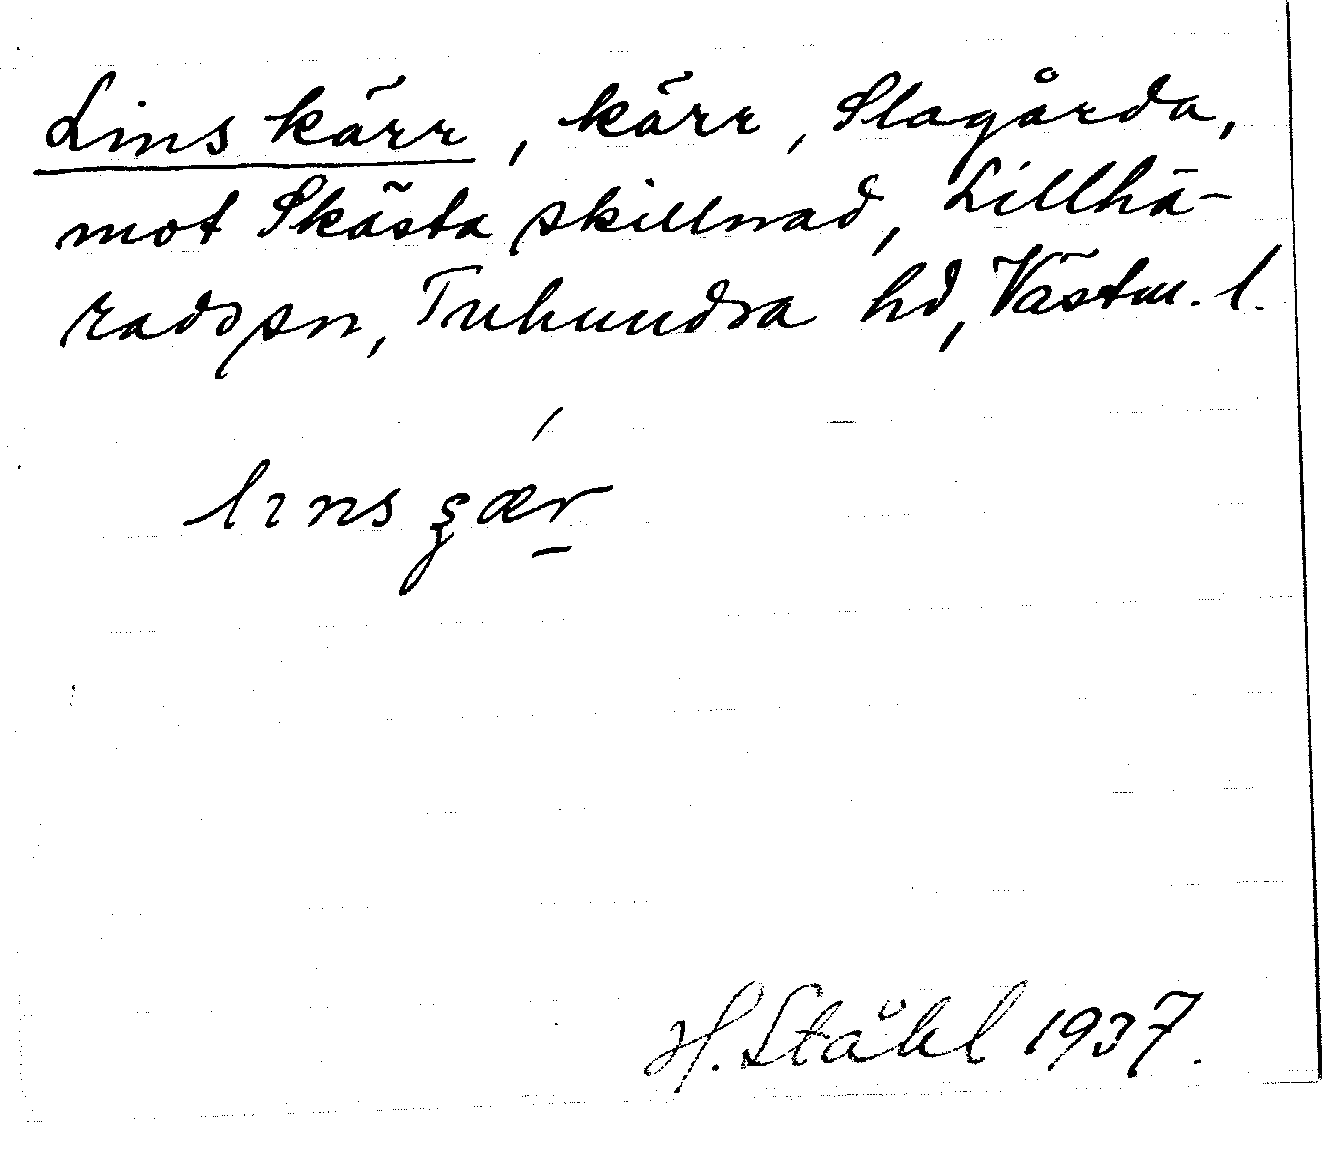 Linskärr, kärr, Slagårda,
mot Skästa skillnad, Lillhä-
rads sn, Tuhundra hd, Västm. l.
H. Ståhl 1937.